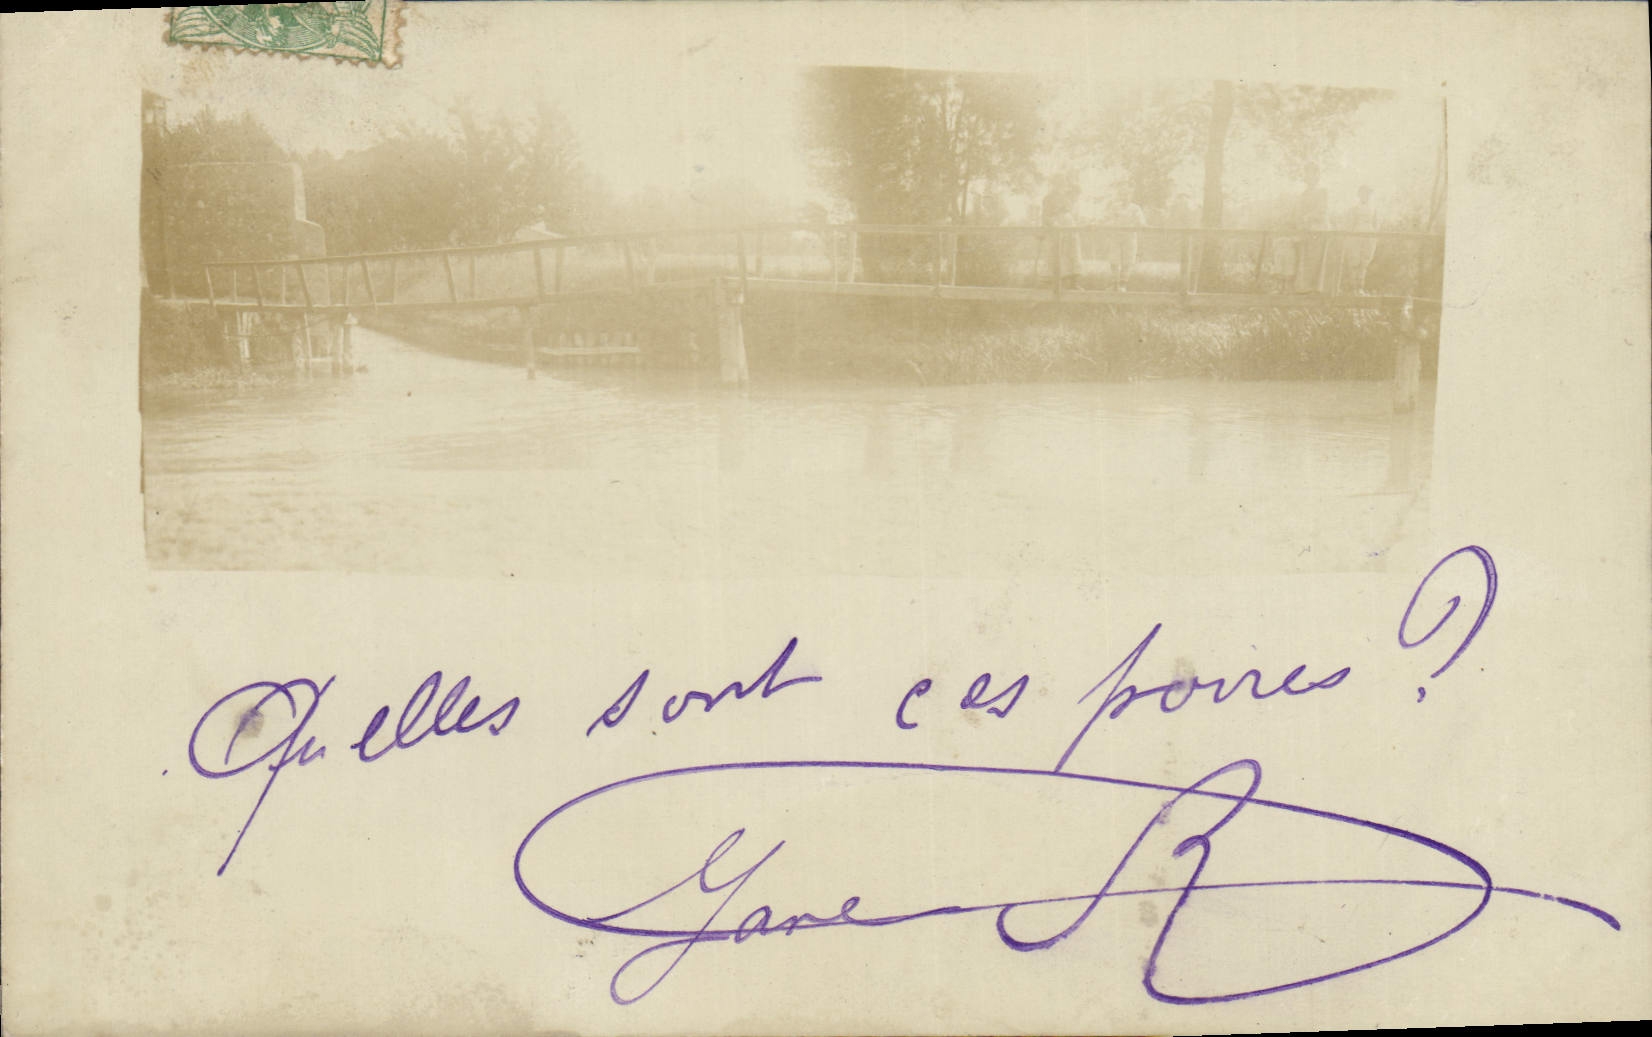 Quelles sont ces poires ?